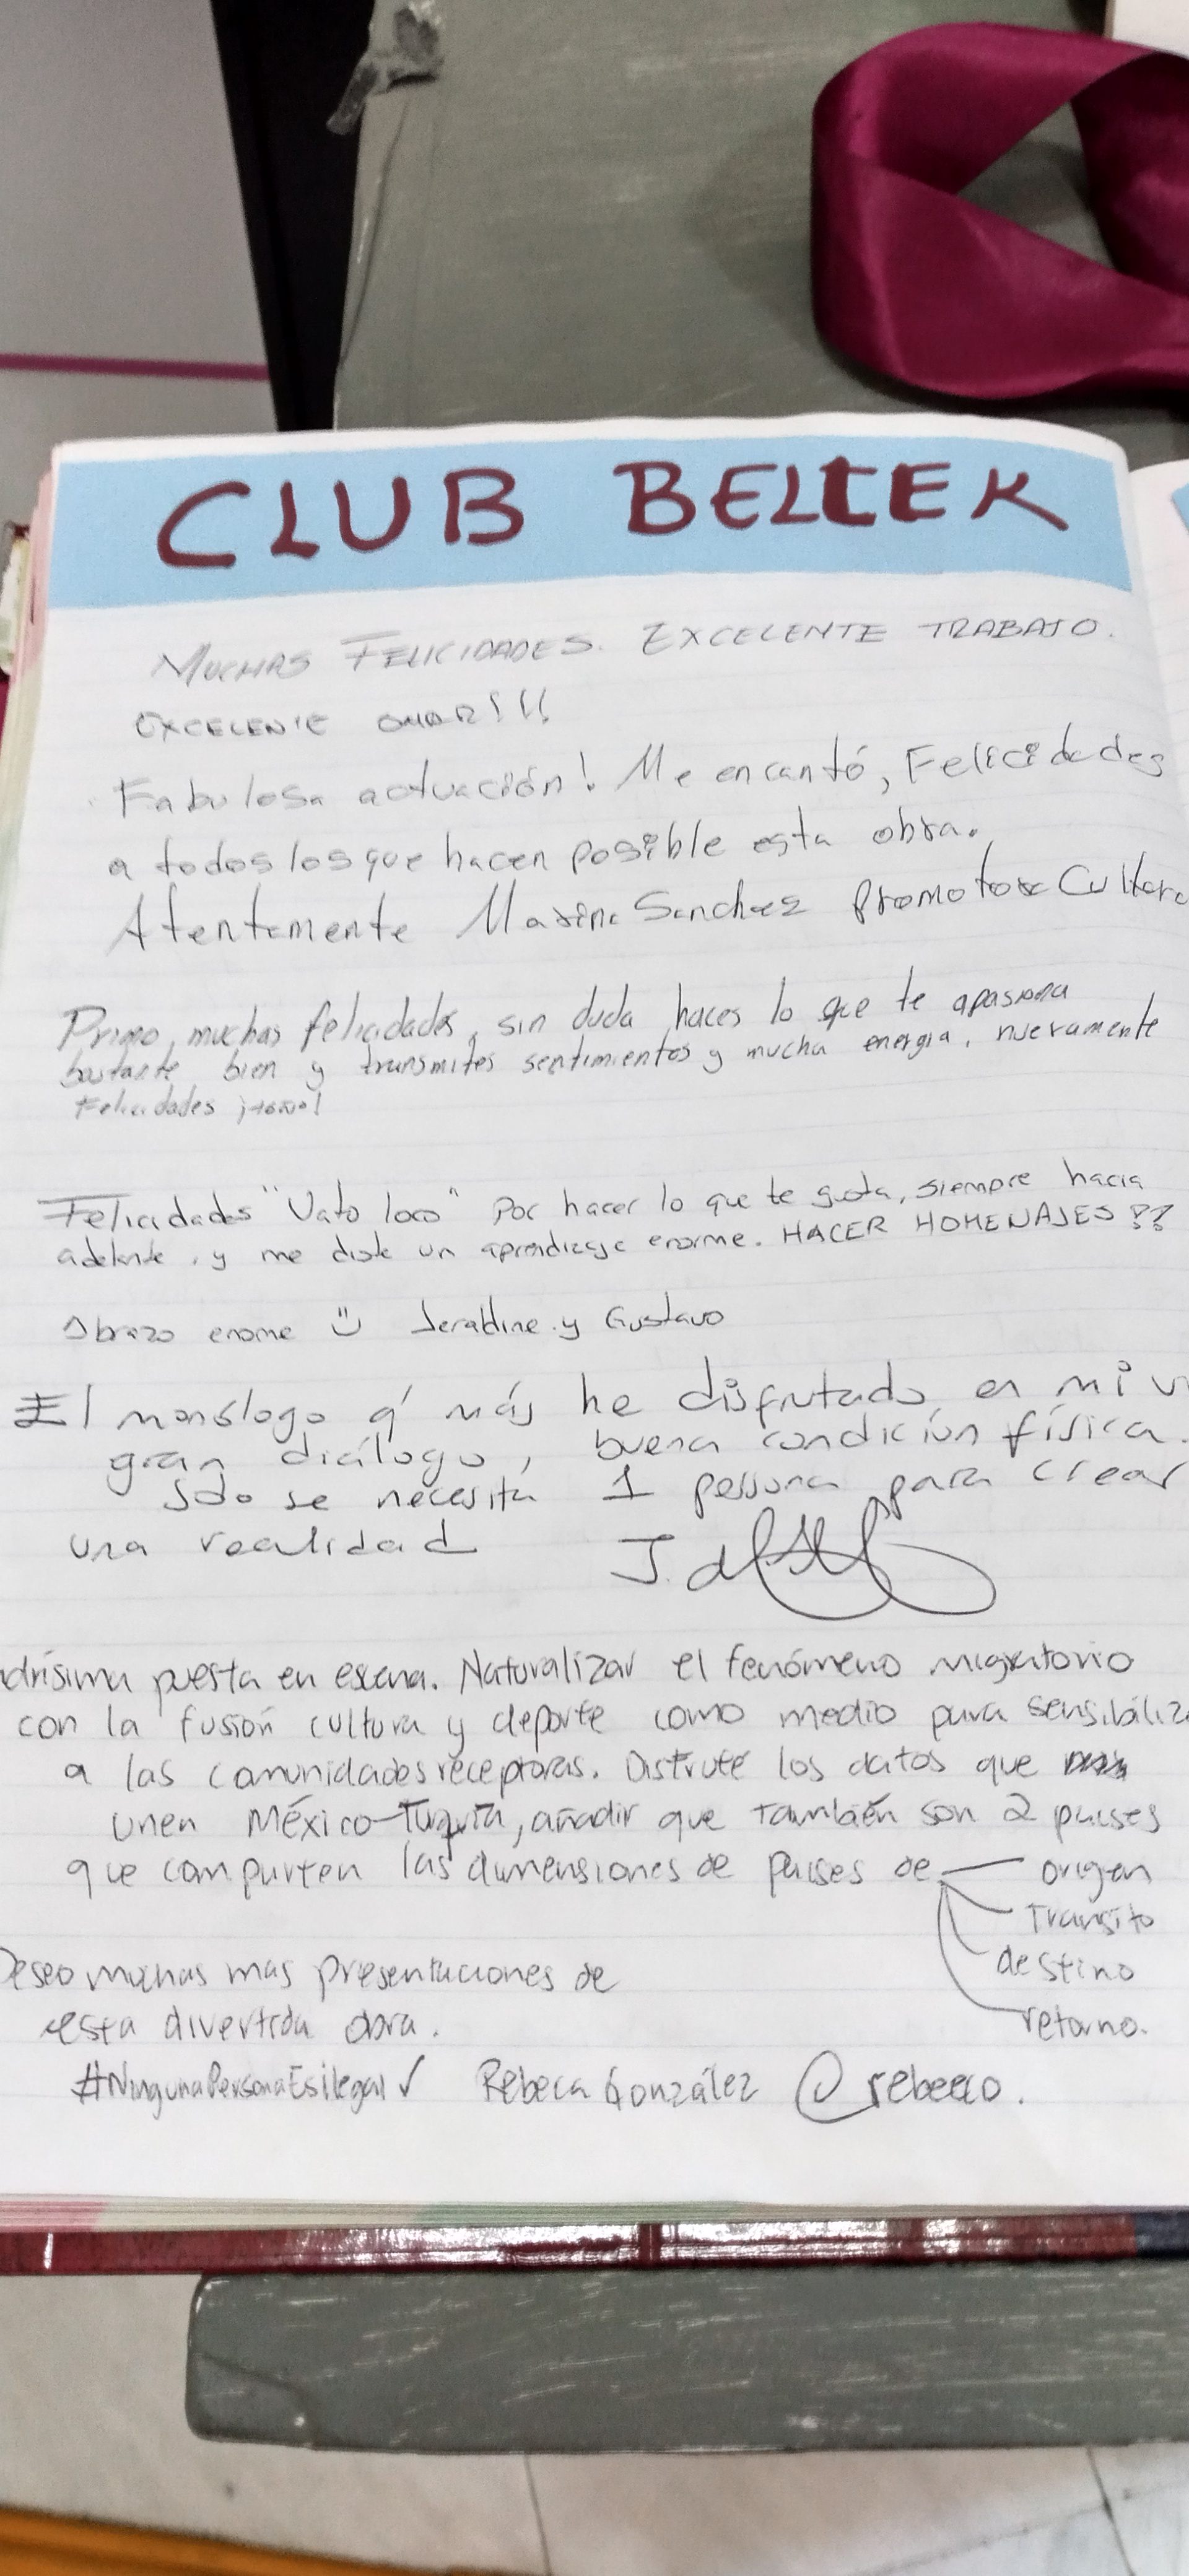 CLUB BELTEK
MUCHAS FELICIDADES. EXCELENTE TRABAJO.
EXCELENTE OMAR!!!
Fabulosa actuación! Me encantó, Felicidades
a todos los que hacen posible esta obra.
Atentemente Marina Sanchez Promotora Cultura
Primo, muchas felicidades, sin duda haces lo que te apasiona
bastante bien y transmites sentimientos y mucha energia, nuevamente
Felicidades
Felicidades "Vato loco" Por hacer lo que te gusta, siempre hacia
adelante, y me diste un aprendizaje enorme. HACER HOMENAJES??
Abrazo enorme Jeraldine y Gustavo
El monólogo q' más he disfrutado en mi v
gran diálogo, buena condición física.
Solo se necesita 1 persona para crear
una realidad
drísima puesta en escena. Naturalizar el fenómeno migratorio
con la fusión cultura y deporte como medio para sensibiliz
a las comunidades receptoras. Disfruté los datos que
unen México-Turquía, añadir que también son 2 países
que comparten las dimensiones de países de — origen
Tránsito
destino
retorno.
Deseo muchas mas presentaciones de
esta divertida obra.
#NingunaPersonaEsilegal ✓ Rebeca González @rebeeco.